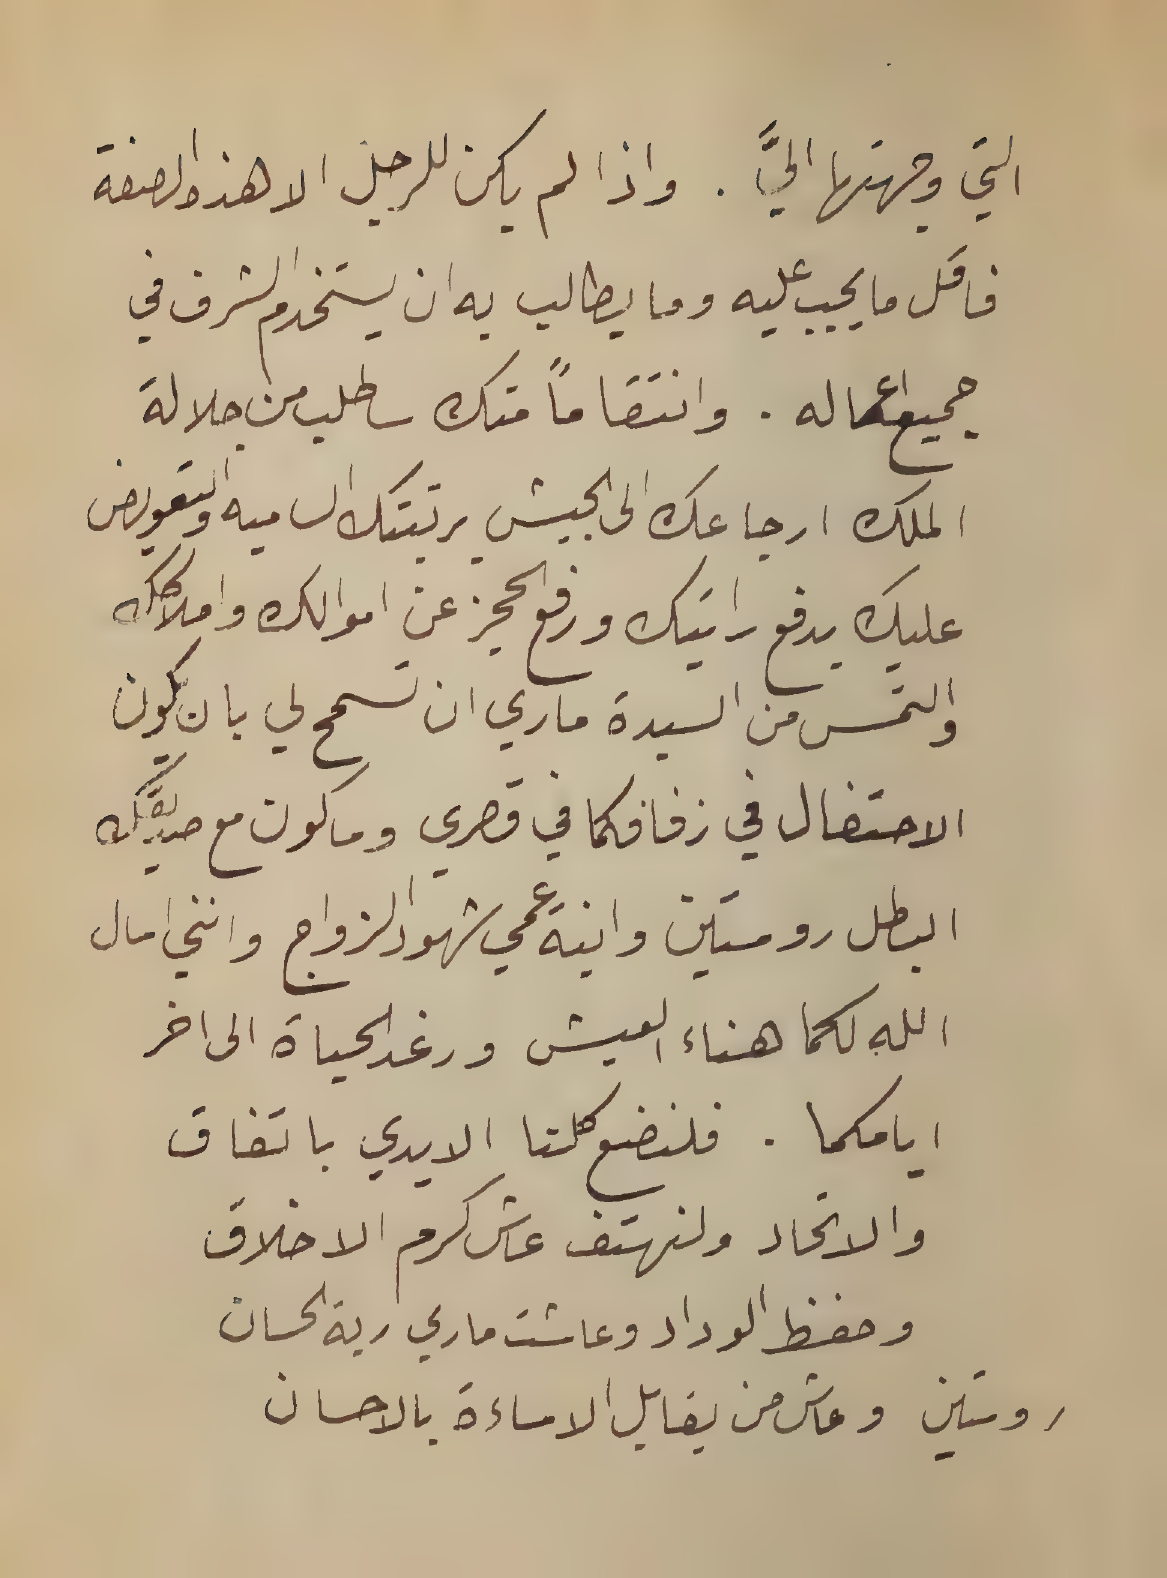 التي وجهتها اليَّ . واذا لم يكن للرجل الا هذه الصفة
فاقل ما يجب عليه وما يطالب به ان يستخدم الشرف في
جميع اعماله . وانتقاماً منك ساطلب من جلالة
الملك ارجاعك الى الجيش برتبتك الساميه والتعويض
عليك بدفع راتبك ورفع الحجز عن اموالك واملاكك
والتمس من السيدة ماري ان تسمح لي بان يكون
الاحتفال في زفافكما في قصري وساكون مع صديقك
البطل روستين وابنة عمي شهود الزواج وانني اسال
الله لكما هناء العيش ورغد الحياة الى اخر
ايامكما . فلنضع كلنا الايدي باتفاق
والاتحاد ولنهتف عاش كرم الاخلاق
وحفظ الوداد وعاشت ماري ربة الحسان
روستين وعاش من يقابل الاساءة بالاحسان